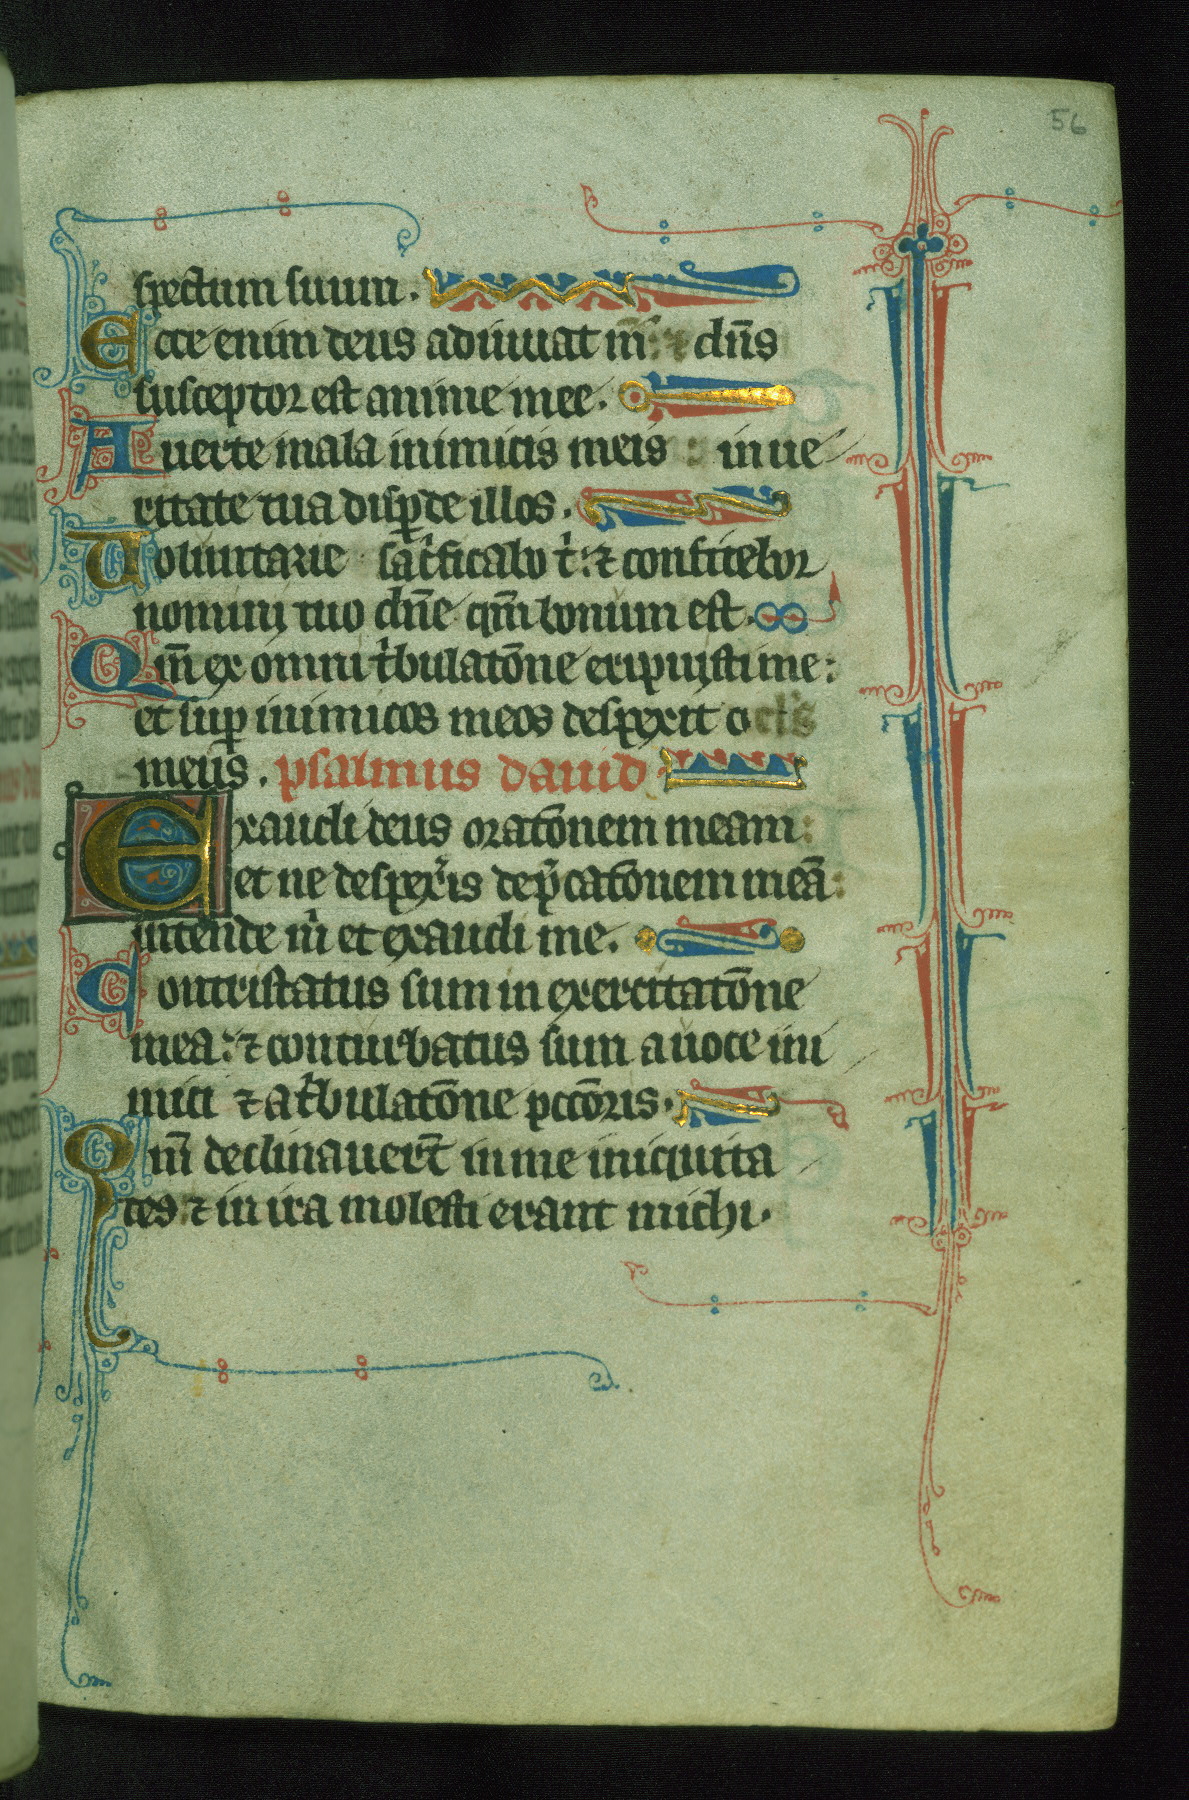 56
spectum suum.
Ecce enim deus adiuuat m̄: ⁊ dn̄s
susceptor est anime mee.
Auerte mala inimicis meis: in ue
ritate tua disꝑde illos.
Uoluntarie sac̓ficabo t̓: ⁊ confitebor
nomini tuo dn̄e qm̄ bonum est.
Qm̄ ex omni t̓bulatōne eripuisti me:
et suꝑ inimicos meos despexit oc̄ls
meus. psalmus dauid
Exaudi deus oratōnem meam:
et ne despex̓is dep̄catōnem meā:
intende m̓ et exaudi me.
Contristatus sum in exercitatōne
mea: ⁊ conturbatus sum a uoce ini
mici ⁊ a t̓bulatōne pctōris.
Qm̄ declinauer̄t in me iniquita
tes ⁊ in ira molesti erant michi.